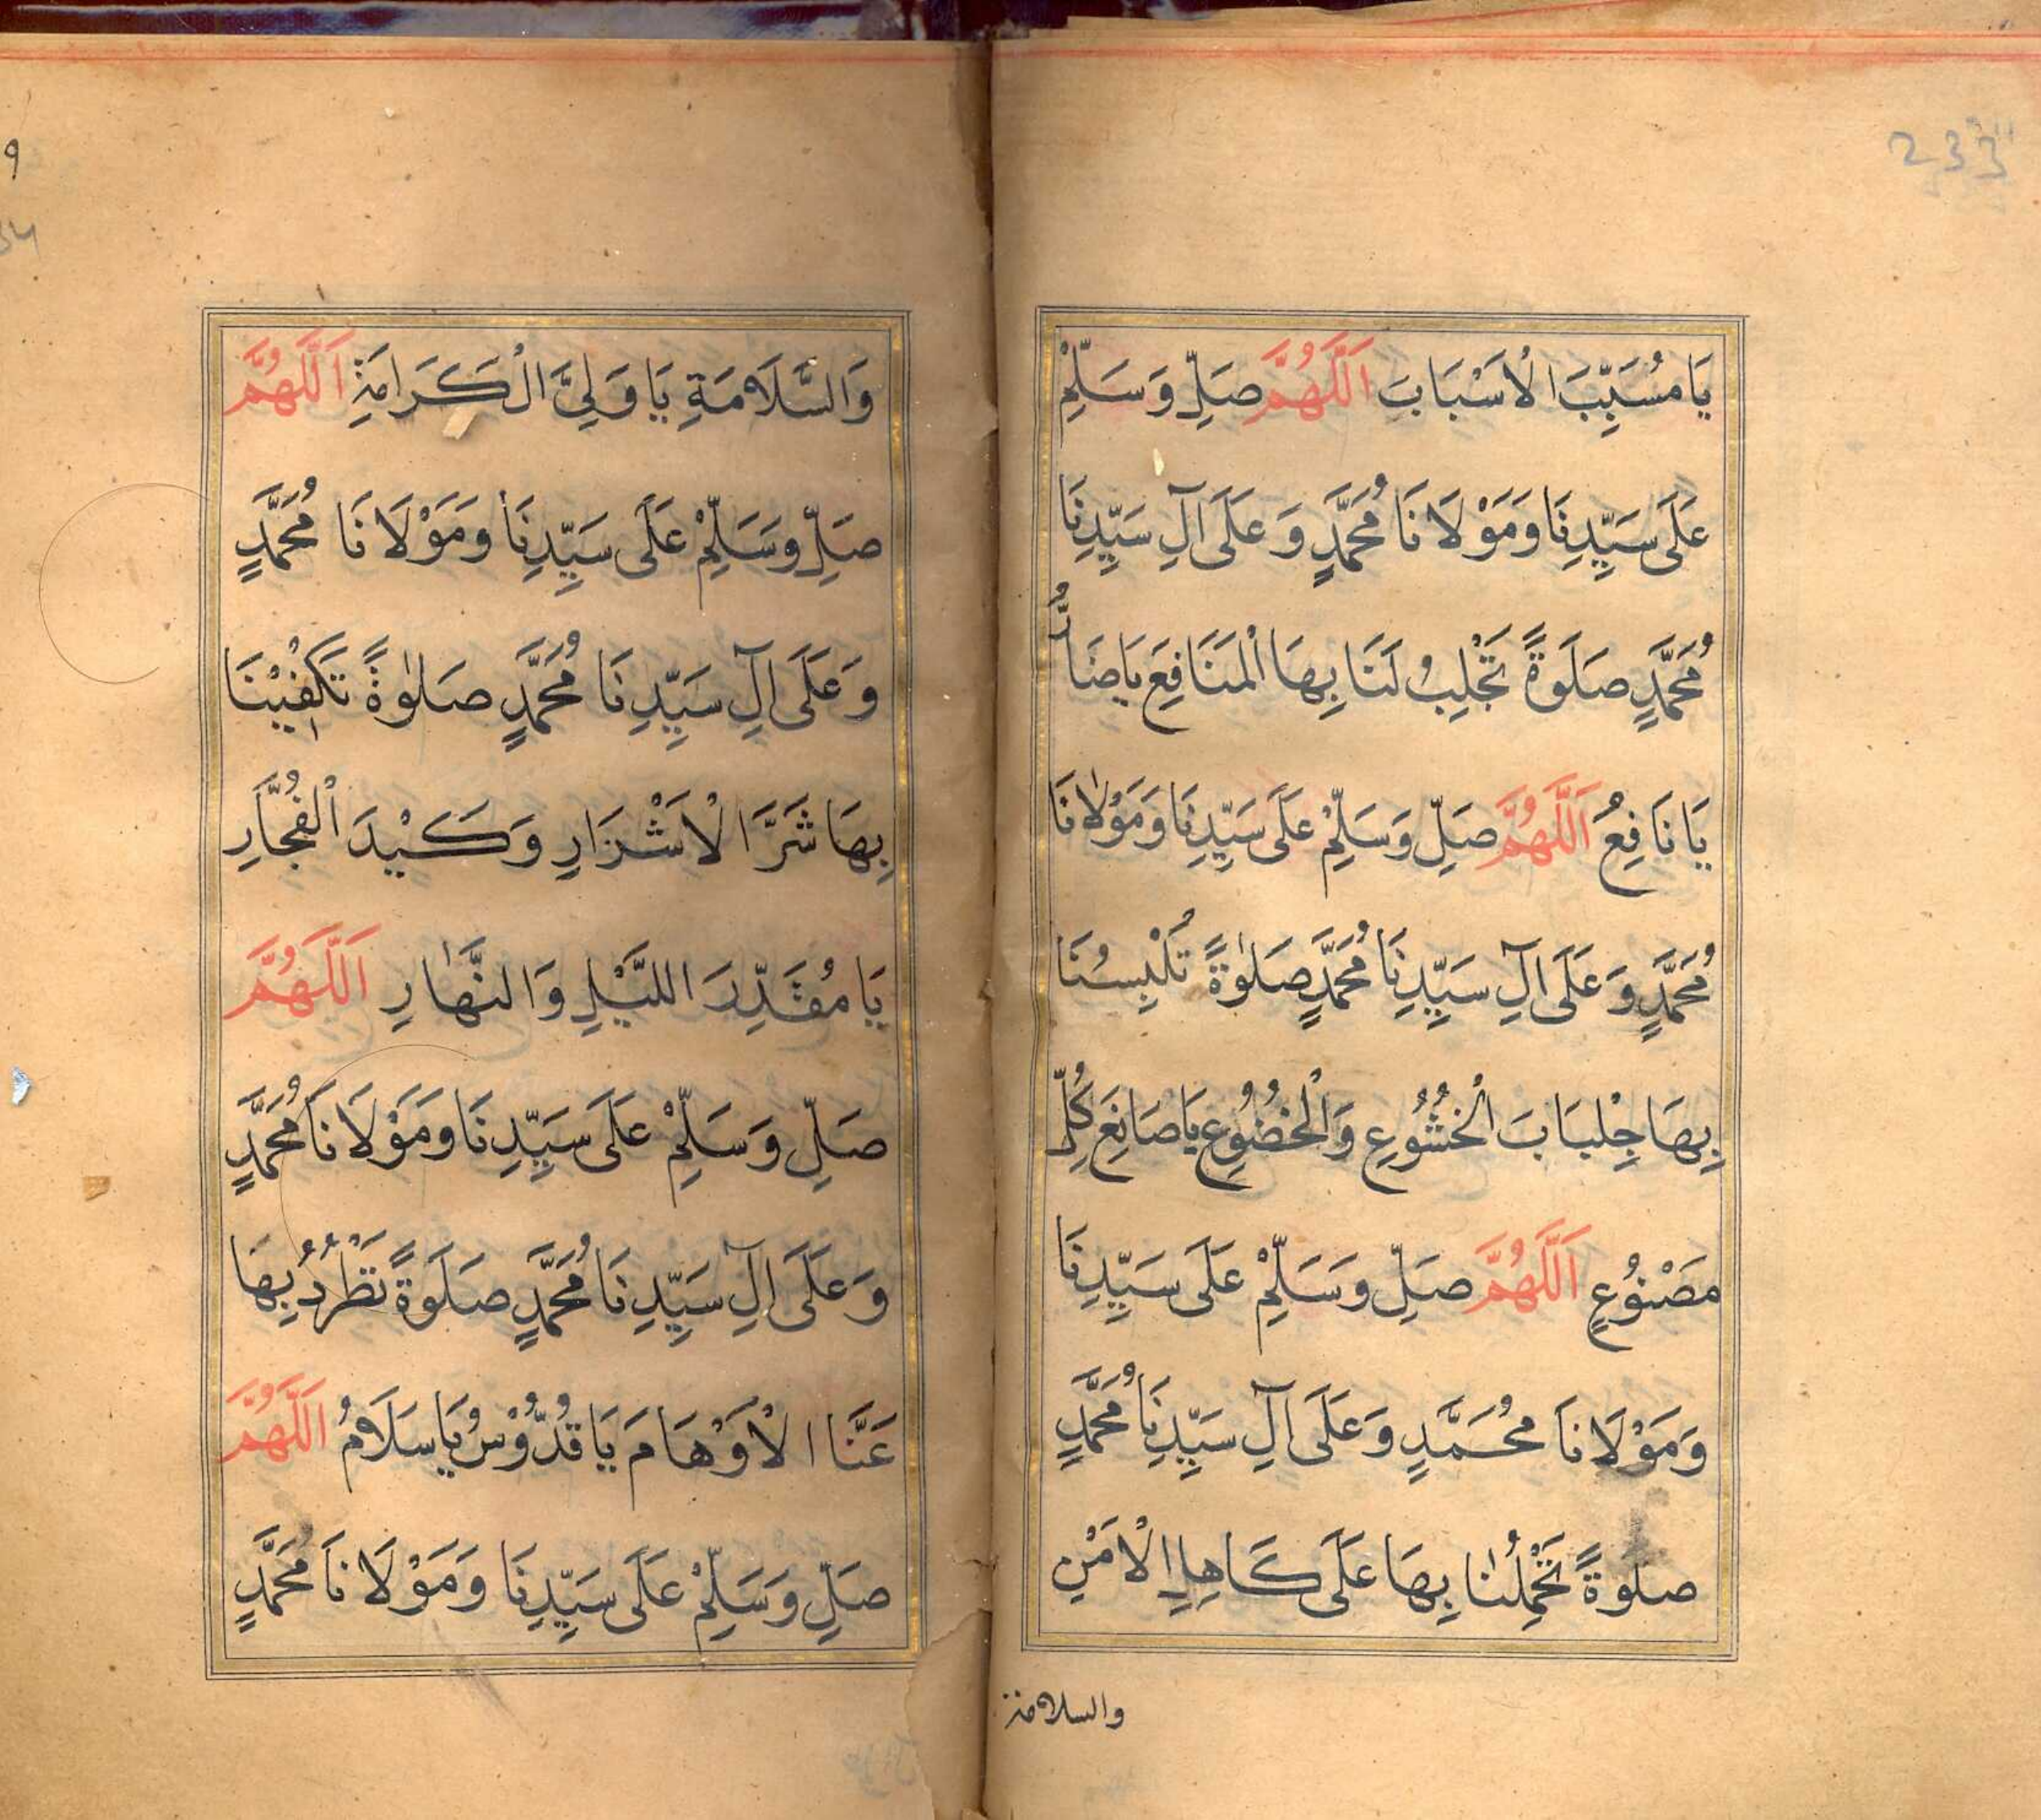 233
يَا مُسَبِّبَ الْاَسْبَابَ اَللَّهُمَّ صَلِّ وَسَلِّمْ
عَلَى سَيِّدِنَا وَمَوْلَانَا مُحَمَّدٍ وَعَلَى آلِ سَيِّدِنَا
مُحَمَّدٍ صَلَوةً تَجْلِبُ لَنَا بِهَا الْمَنَافِعَ يَا ضَارُّ
يَا نَافِعُ اَللَّهُمَّ صَلِّ وَسَلِّمْ عَلَى سَيِّدِنَا وَمَوْلٰانَا
مُحَمَّدٍ وَعَلَى آلِ سَيِّدِنَا مُحَمَّدٍ صَلٰوةً تُلْبِسُنَا
بِهَا جِلْبَابَ الْخُشُوعِ وَالْخُضُوعِ يَا صَانِعَ كُلِّ
مَصْنُوْعٍ اَللَّهُمَّ صَلِّ وَسَلِّمْ عَلَى سَيِّدِنَا
وَمَوْلَانَا مُحَمَّدٍ وَعَلَى آلِ سَيِّدِنَا مُحَمَّدٍ
صلَوةً تَحْمِلُنٰا بِهَا عَلَى كَاهِلِ الْاَمْنِ
والسلامة
9
34
وَالسَّلَامَةِ يَا وَلِيَّ الْكَرَامَةِ اَللَّهُمَّ
صَلِّ وَسَلِّمْ عَلَى سَيِّدِنَا وَمَوْلَانَا مُحَمَّدٍ
وَعَلَى آلِ سَيِّدِنَا مُحَمَّدٍ صَلٰوةً تَكْفِيْنَا
بِهَا شَرَّ الْاَشْرَارِ وَكَيْدَ الْفُجَّارِ
يَا مُقَدِّرَ اللَّيْلِ وَالنَّهٰارِ اَللَّهُمَّ
صَلِّ وَسَلِّمْ عَلَى سَيِّدِنَا وَمَوْلَانَا مُحَمَّدٍ
وَعَلَى آلِ سَيِّدِنَا مُحَمَّدٍ صَلَوةً تَطْرُدُ بِهَا
عَنَّا الْاَوْهَامَ يَا قُدُّوْسُ يَا سَلَامُ اَللَّهُمَّ
صَلِّ وَسَلِّمْ عَلَى سَيِّدِنَا وَمَوْلَانَا مُحَمَّدٍ